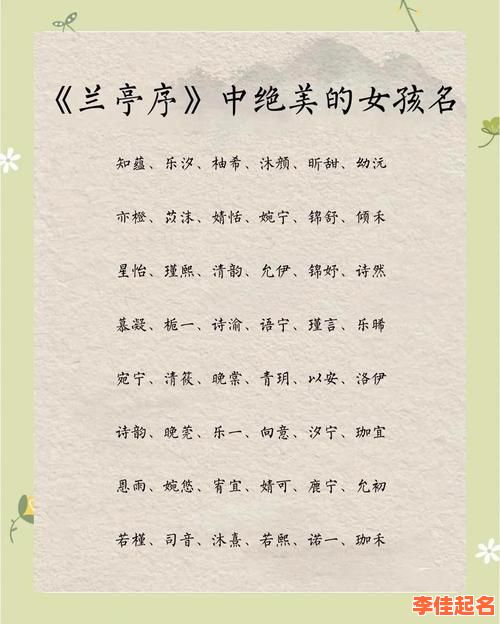 《兰亭序》中绝美的女孩名
知蕴、乐汐、柚希、沐颜、昕甜、幼沅
亦橙、苡沫、婧恬、婉宁、锦舒、倾禾
星怡、瑾熙、清韵、允伊、锦妤、诗然
慕凝、栀一、诗渝、语宁、瑾言、乐晞
宛宁、清筱、晚棠、青玥、以安、洛伊
诗韵、晚莞、乐一、向意、汐宁、珈宜
恩雨、婉悠、宥宜、婧可、鹿宁、允初
若槿、司音、沐熹、若熙、诺一、珈禾
李佳起名